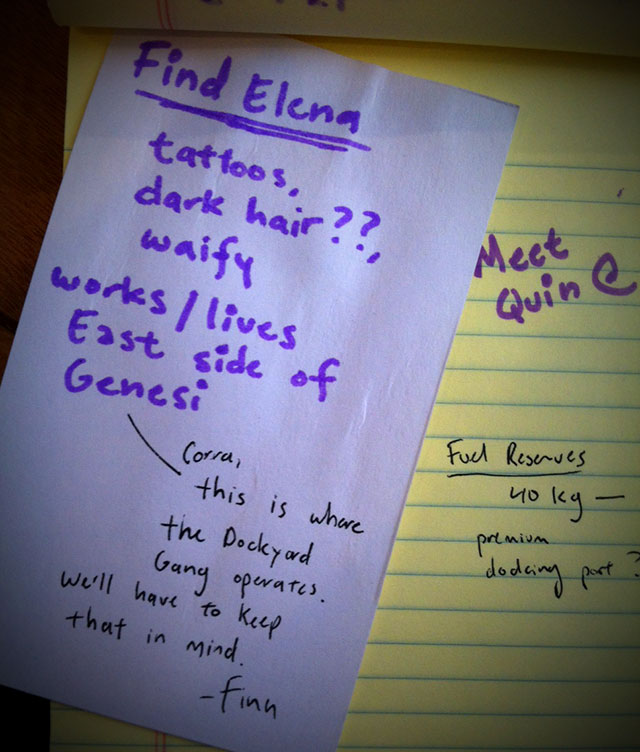 Find Elena
tattoos,
dark hair??,
waify
works/lives
East side of
Genesi
Corra,
this is where
the Dockyard
Gang operates.
We'll have to keep
that in mind.
-Finn
Meet
Quin @
Fuel Reserves
40 kg —
premium
docking port?